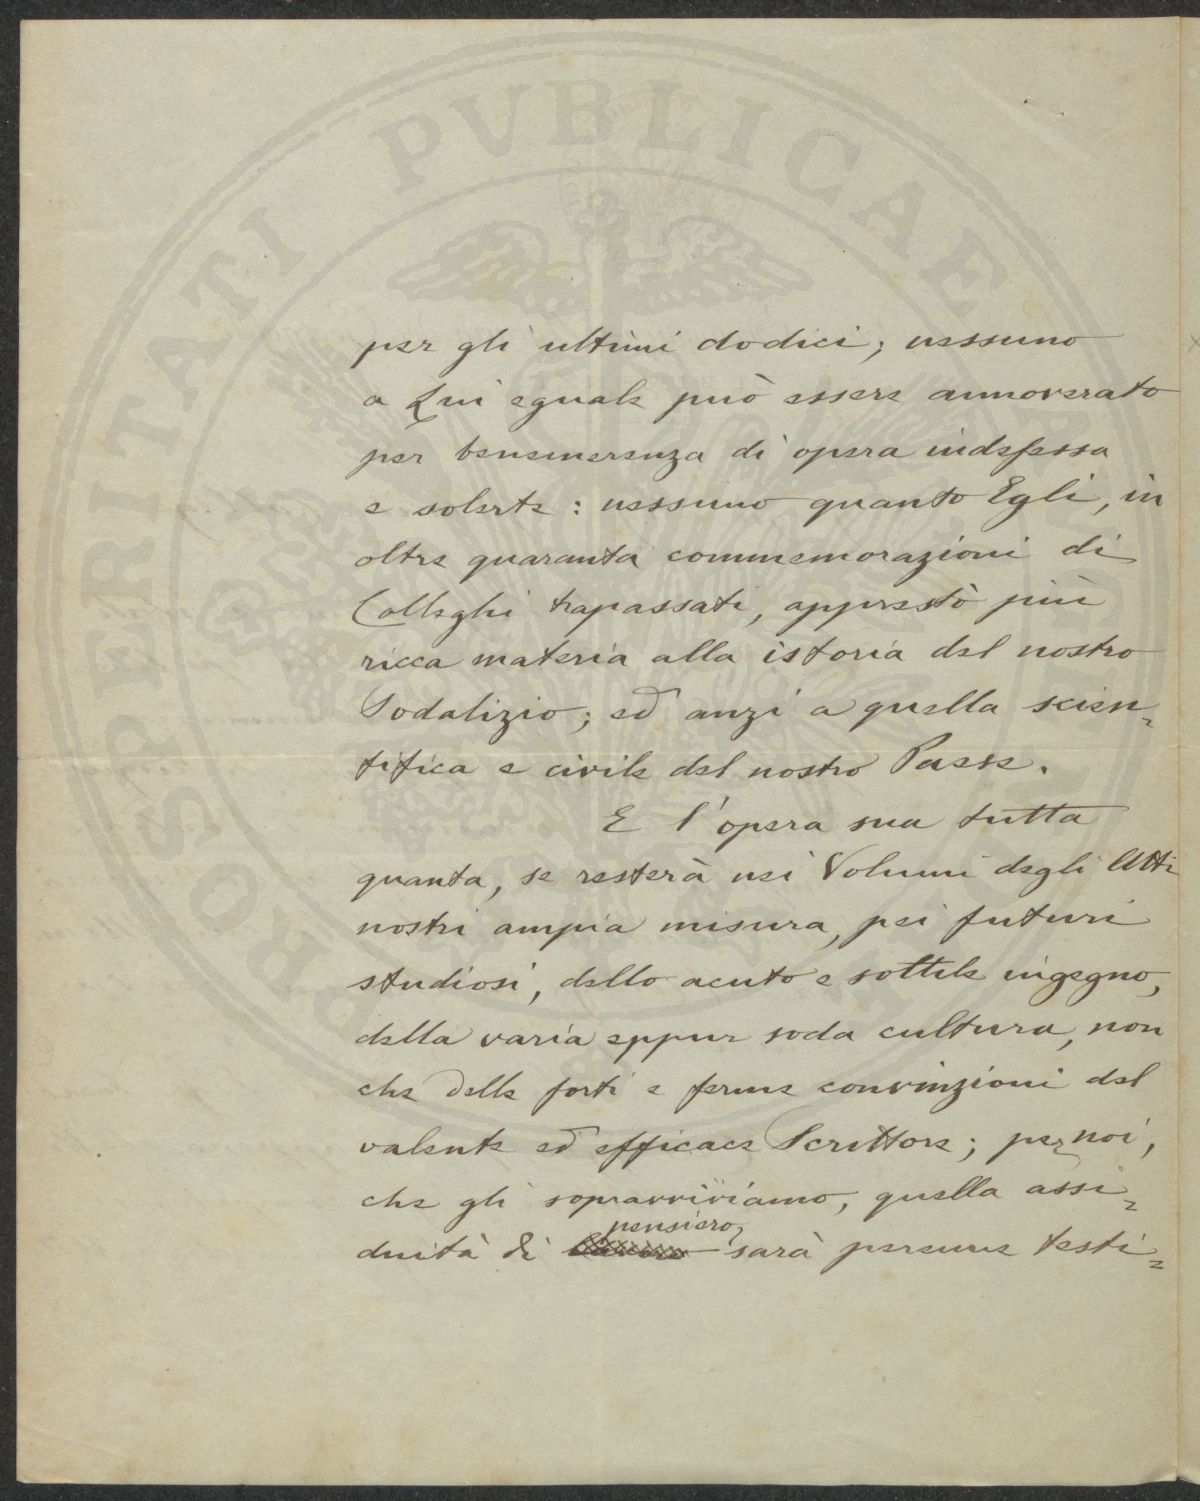 PROSPERITATI PVBLICAE
per gli ultimi dodici; nessuno
a Lui eguale può essere annoverato
per benemerenza di opera indefessa
e solerte: nessuno quanto Egli, in
oltre quaranta commemorazioni di
Colleghi trapassati, apprestò più
ricca materia alla istoria del nostro
Sodalizio; ed anzi a quella scien=
tifica e civile del nostro Paese.
E l'opera sua tutta
quanta, se resterà nei Volumi degli Atti
nostri ampia misura, pei futuri
studiosi, dello acuto e sottile ingegno,
della varia eppur soda cultura, non
che delle forti e ferme convinzioni del
valente ed efficace Scrittore; per noi,
che gli sopravviviamo, quella assi=
pensiero,
duità di sarà perenne testi=